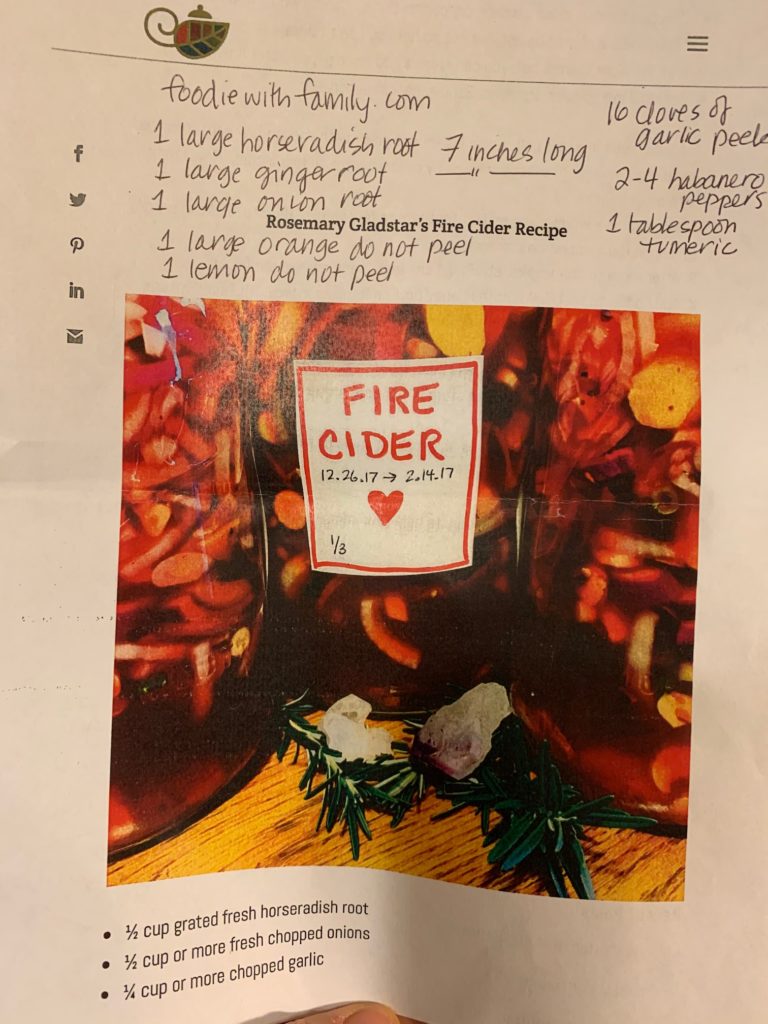 foodiewithfamily.com
1 large horseradish root 7 inches long
1 large ginger root
1 large onion root
Rosemary Gladstar's Fire Cider Recipe
1 large orange do not peel
1 lemon do not peel
16 cloves of
garlic peele
2-4 habanero
peppers
1 tablespoon
tumeric
f
in
FIRE
CIDER
12.26.17 → 2.14.17
1/3
• ½ cup grated fresh horseradish root
• ½ cup or more fresh chopped onions
• ¼ cup or more chopped garlic